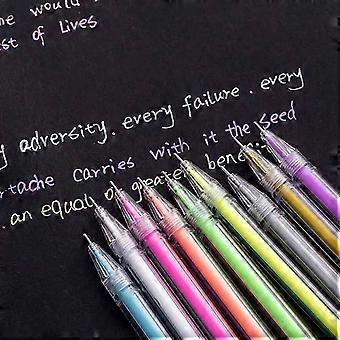 he would
st of Lives
y adversity. every failure. every
rtache carries with it the seed
. an equal or greater benefi